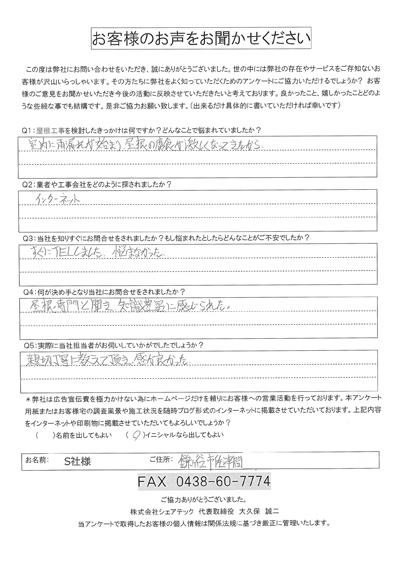 お客様のお声をお聞かせください
この度は弊社にお問い合わせをいただき、誠にありがとうございました。世の中には弊社の存在やサービスをご存知ないお
客様が沢山いらっしゃいます。その方たちに弊社をよく知っていただくためのアンケートにご協力いただけるでしょうか？ お客
様のご意見をお聞かせいただき今後の活動に反映させていただきたいと考えております。良かったこと、嬉しかったことどのよ
うな些細な事でも結構です。是非ご協力お願い致します。（出来るだけ具体的に書いていただければ幸いです）
Q1：屋根工事を検討したきっかけは何ですか？どんなことで悩まれていましたか？
室内に雨漏れが始まり 屋根の腐食が激しくなってきたから
Q2：業者や工事会社をどのように探されましたか？
インターネット
Q3：当社を知りすぐにお問合せをされましたか？もし悩まれたとしたらどんなことがご不安でしたか？
すぐにTELしました。悩まなかった
Q4：何が決め手となり当社にお問合せをされましたか？
屋根専門と聞き、知識豊富に感じられた。
Q5：実際に当社担当者がお伺いしていかがでしたでしょうか？
親切丁寧に教えて頂き 感が良かった
＊弊社は広告宣伝費を極力かけない為にホームページだけを頼りにお客様への営業活動を行っております。本アンケート
用紙またはお客様宅の調査風景や施工状況を随時ブログ形式のインターネットに掲載させていただいております。上記内容
をインターネットや印刷物に掲載させていただいてもよろしいでしょうか？
（　）名前を出してもよい （○）イニシャルなら出してもよい
お名前： S社様 ご住所： 鎌ヶ谷市佐津間
FAX 0438-60-7774
ご協力ありがとうございました。
株式会社シェアテック 代表取締役 大久保 誠二
当アンケートで取得したお客様の個人情報は関係法規に基づき厳正に管理いたします。